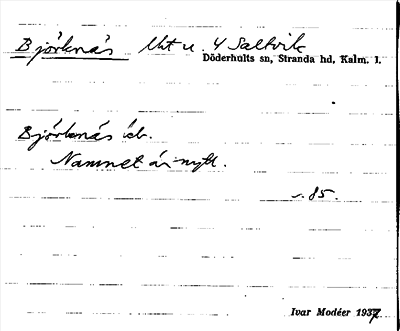 Björknäs lht u. 4 Saltvik
Döderhults sn, Stranda hd, Kalm. l.
Björknäs
Namnet är nytt.
85.
Ivar Modéer 1937